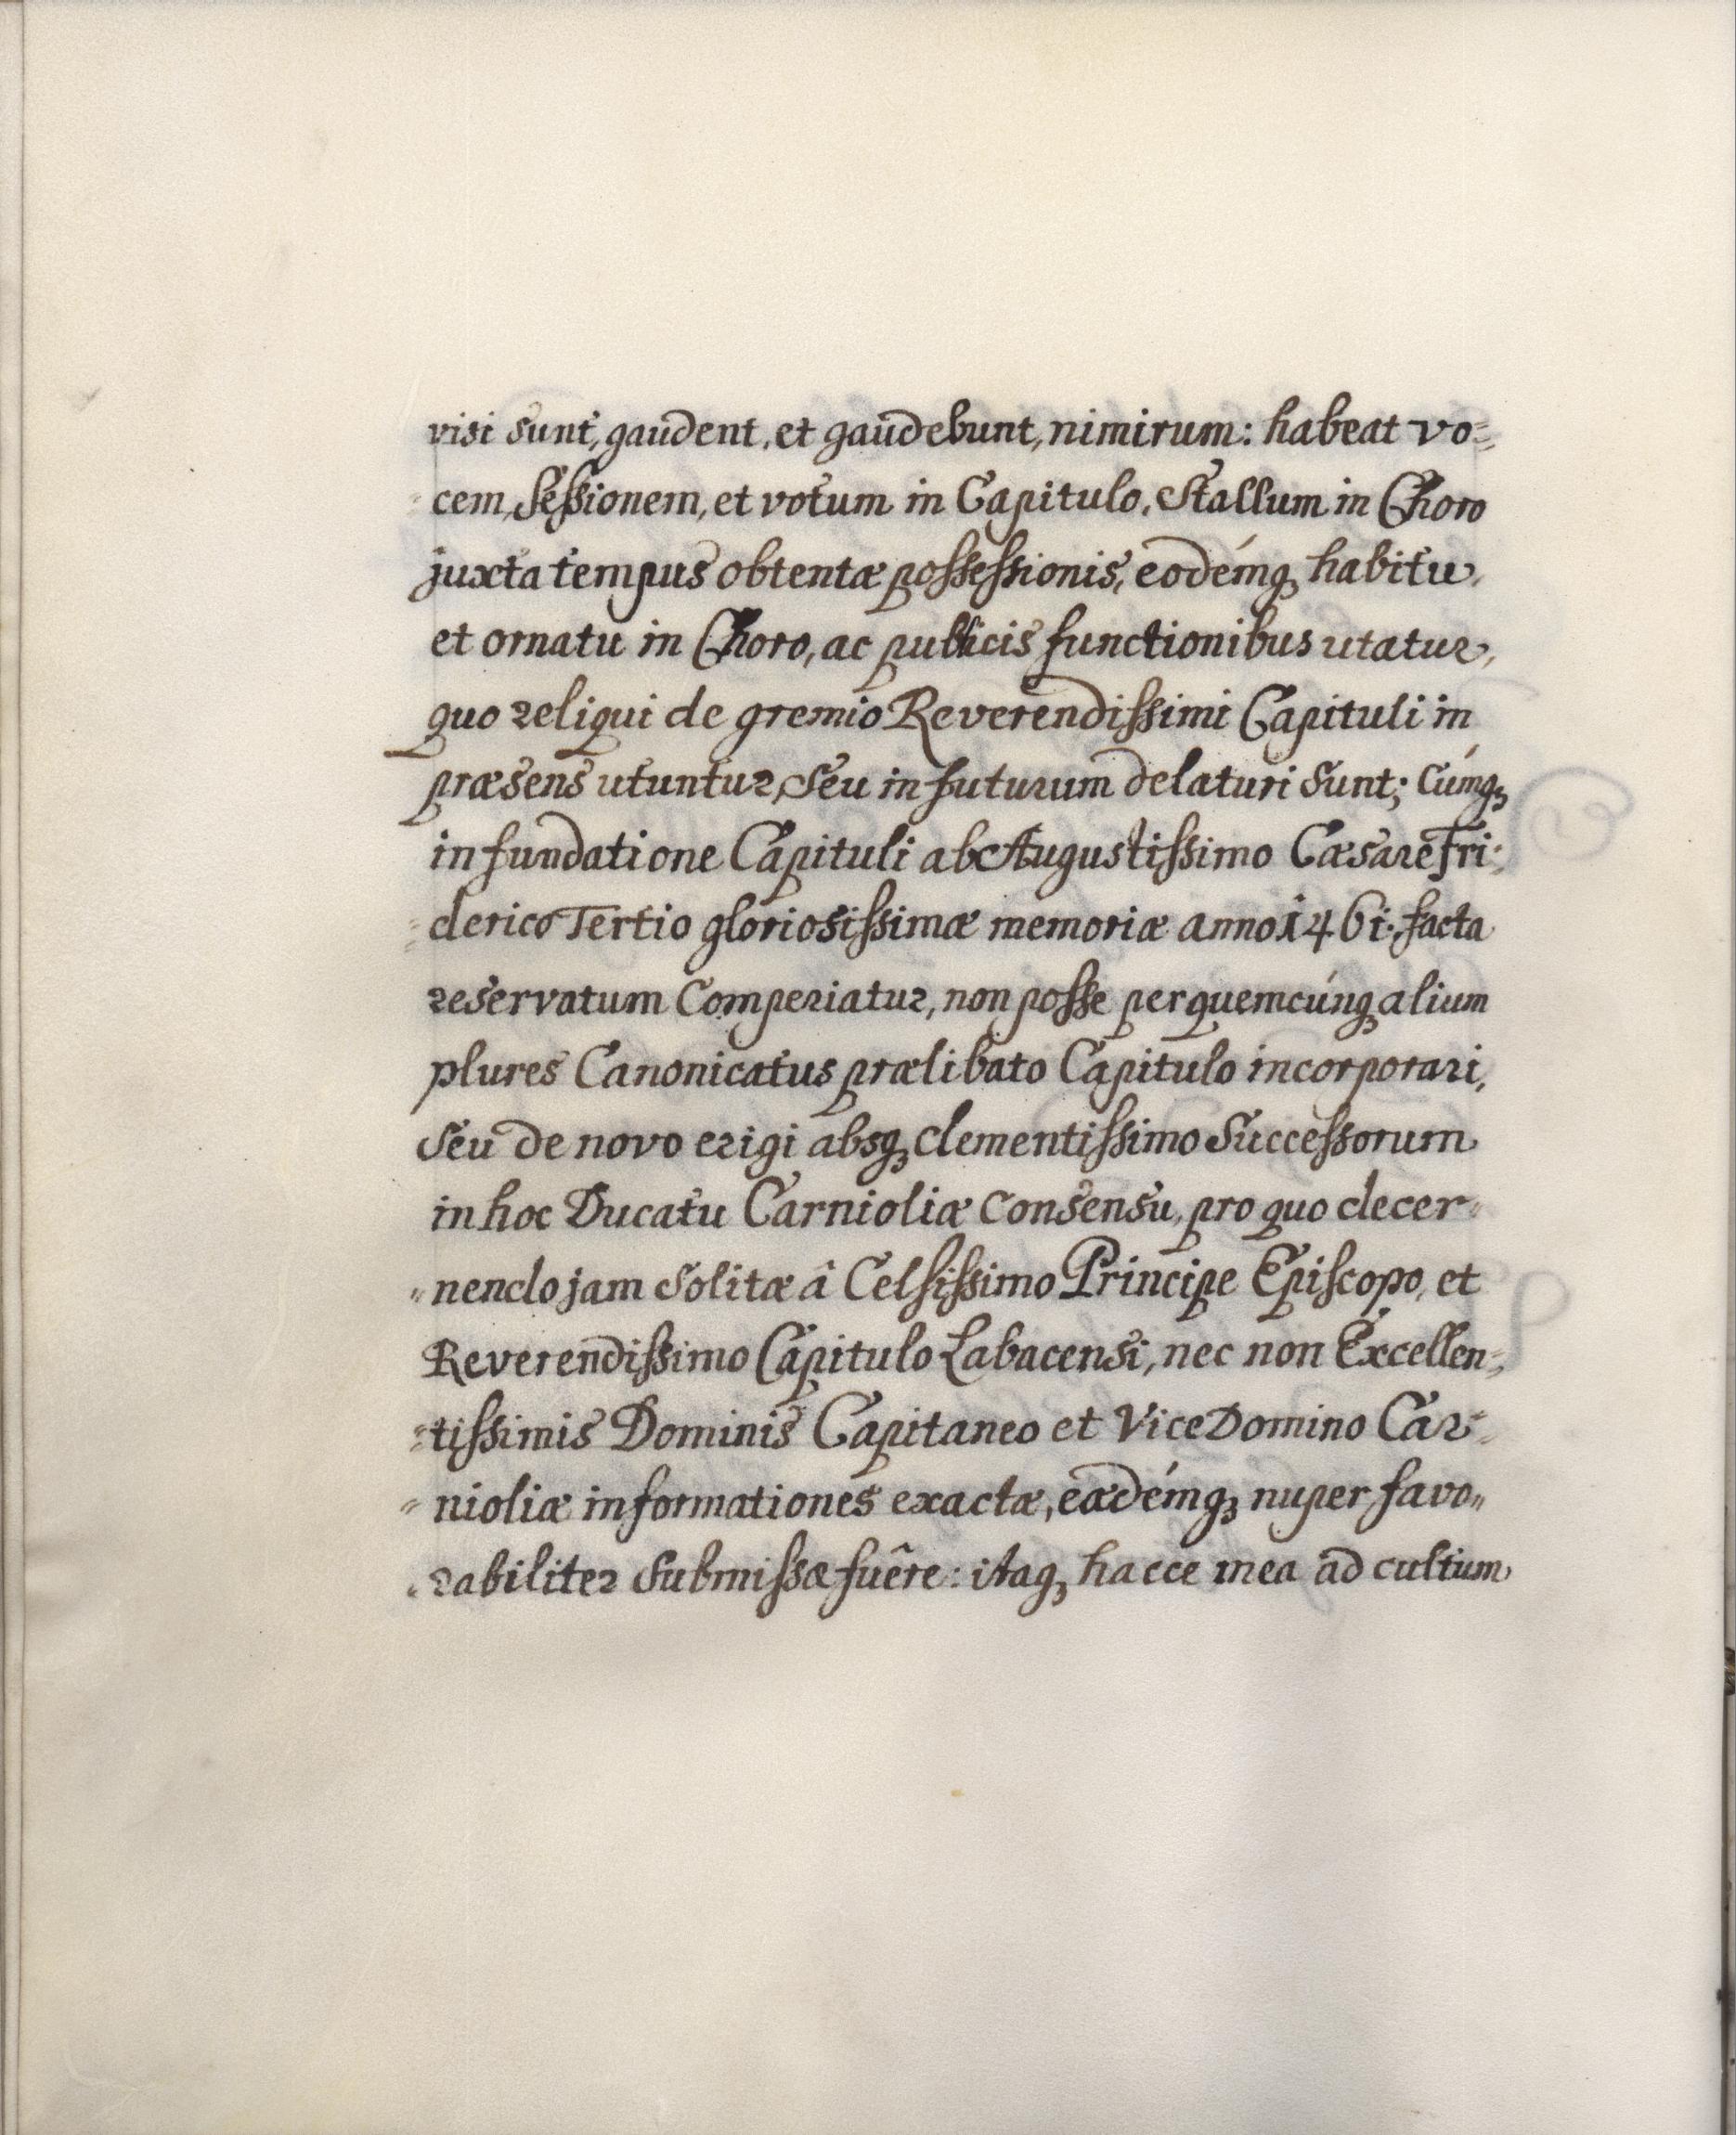 visi sunt, gaudent, et gaudebunt, nimirum: habeat vo=
cem, Sessionem, et votum in Capitulo, Stallum in Choro
juxta tempus obtentæ possessionis, eodémq₃ habitu,
et ornatu in Choro, ac publicis functionibus utatur,
quo reliqui de gremio Reverendissimi Capituli in
præsens utuntur, Seu in futurum delaturi sunt; Cúmq₃
in fundatione Capituli ab Augustissimo Cæsare Fri=
=derico Tertio gloriosissimæ memoriæ anno 1461. facta
reservatum Comperiatur, non posse per quemcúnq₃ alium
plures Canonicatus prælibato Capitulo incorporari,
Seu de novo erigi absq₃ clementissimo Successorum
in hoc Ducatu Carnioliæ Consensu, pro quo decer=
=nendo jam Solitæ â Celsissimo Principe Episcopo, et
Reverendissimo Capitulo Labacensi, nec non Excellen=
=tissimis Dominis Capitaneo et ViceDomino Car=
=nioliæ informationes exactæ, eædémq₃ nuper favo=
=rabiliter Submissæ fuêre: itaq₃ hacce mea ad cultum